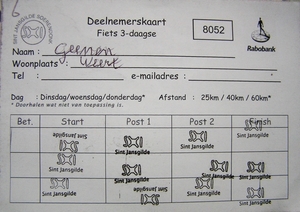 SINT JANSGILDE
Deelnemerskaart
Fiets 3-daagse
8052
Rabobank
Naam : Geenen
Woonplaats : Weert
Tel : e-mailadres :
Dag : Dinsdag/woensdag/donderdag* Afstand : 25km / 40km / 60km*
* Doorhalen wat niet van toepassing is.
Bet. Start Post 1 Post 2 Finish
Sint Jansgilde
Sint Jansgilde Sint Jansgilde Sint Jansgilde Sint Jansgilde
Sint Jansgilde Sint Jansgilde Sint Jansgilde Sint Jansgilde